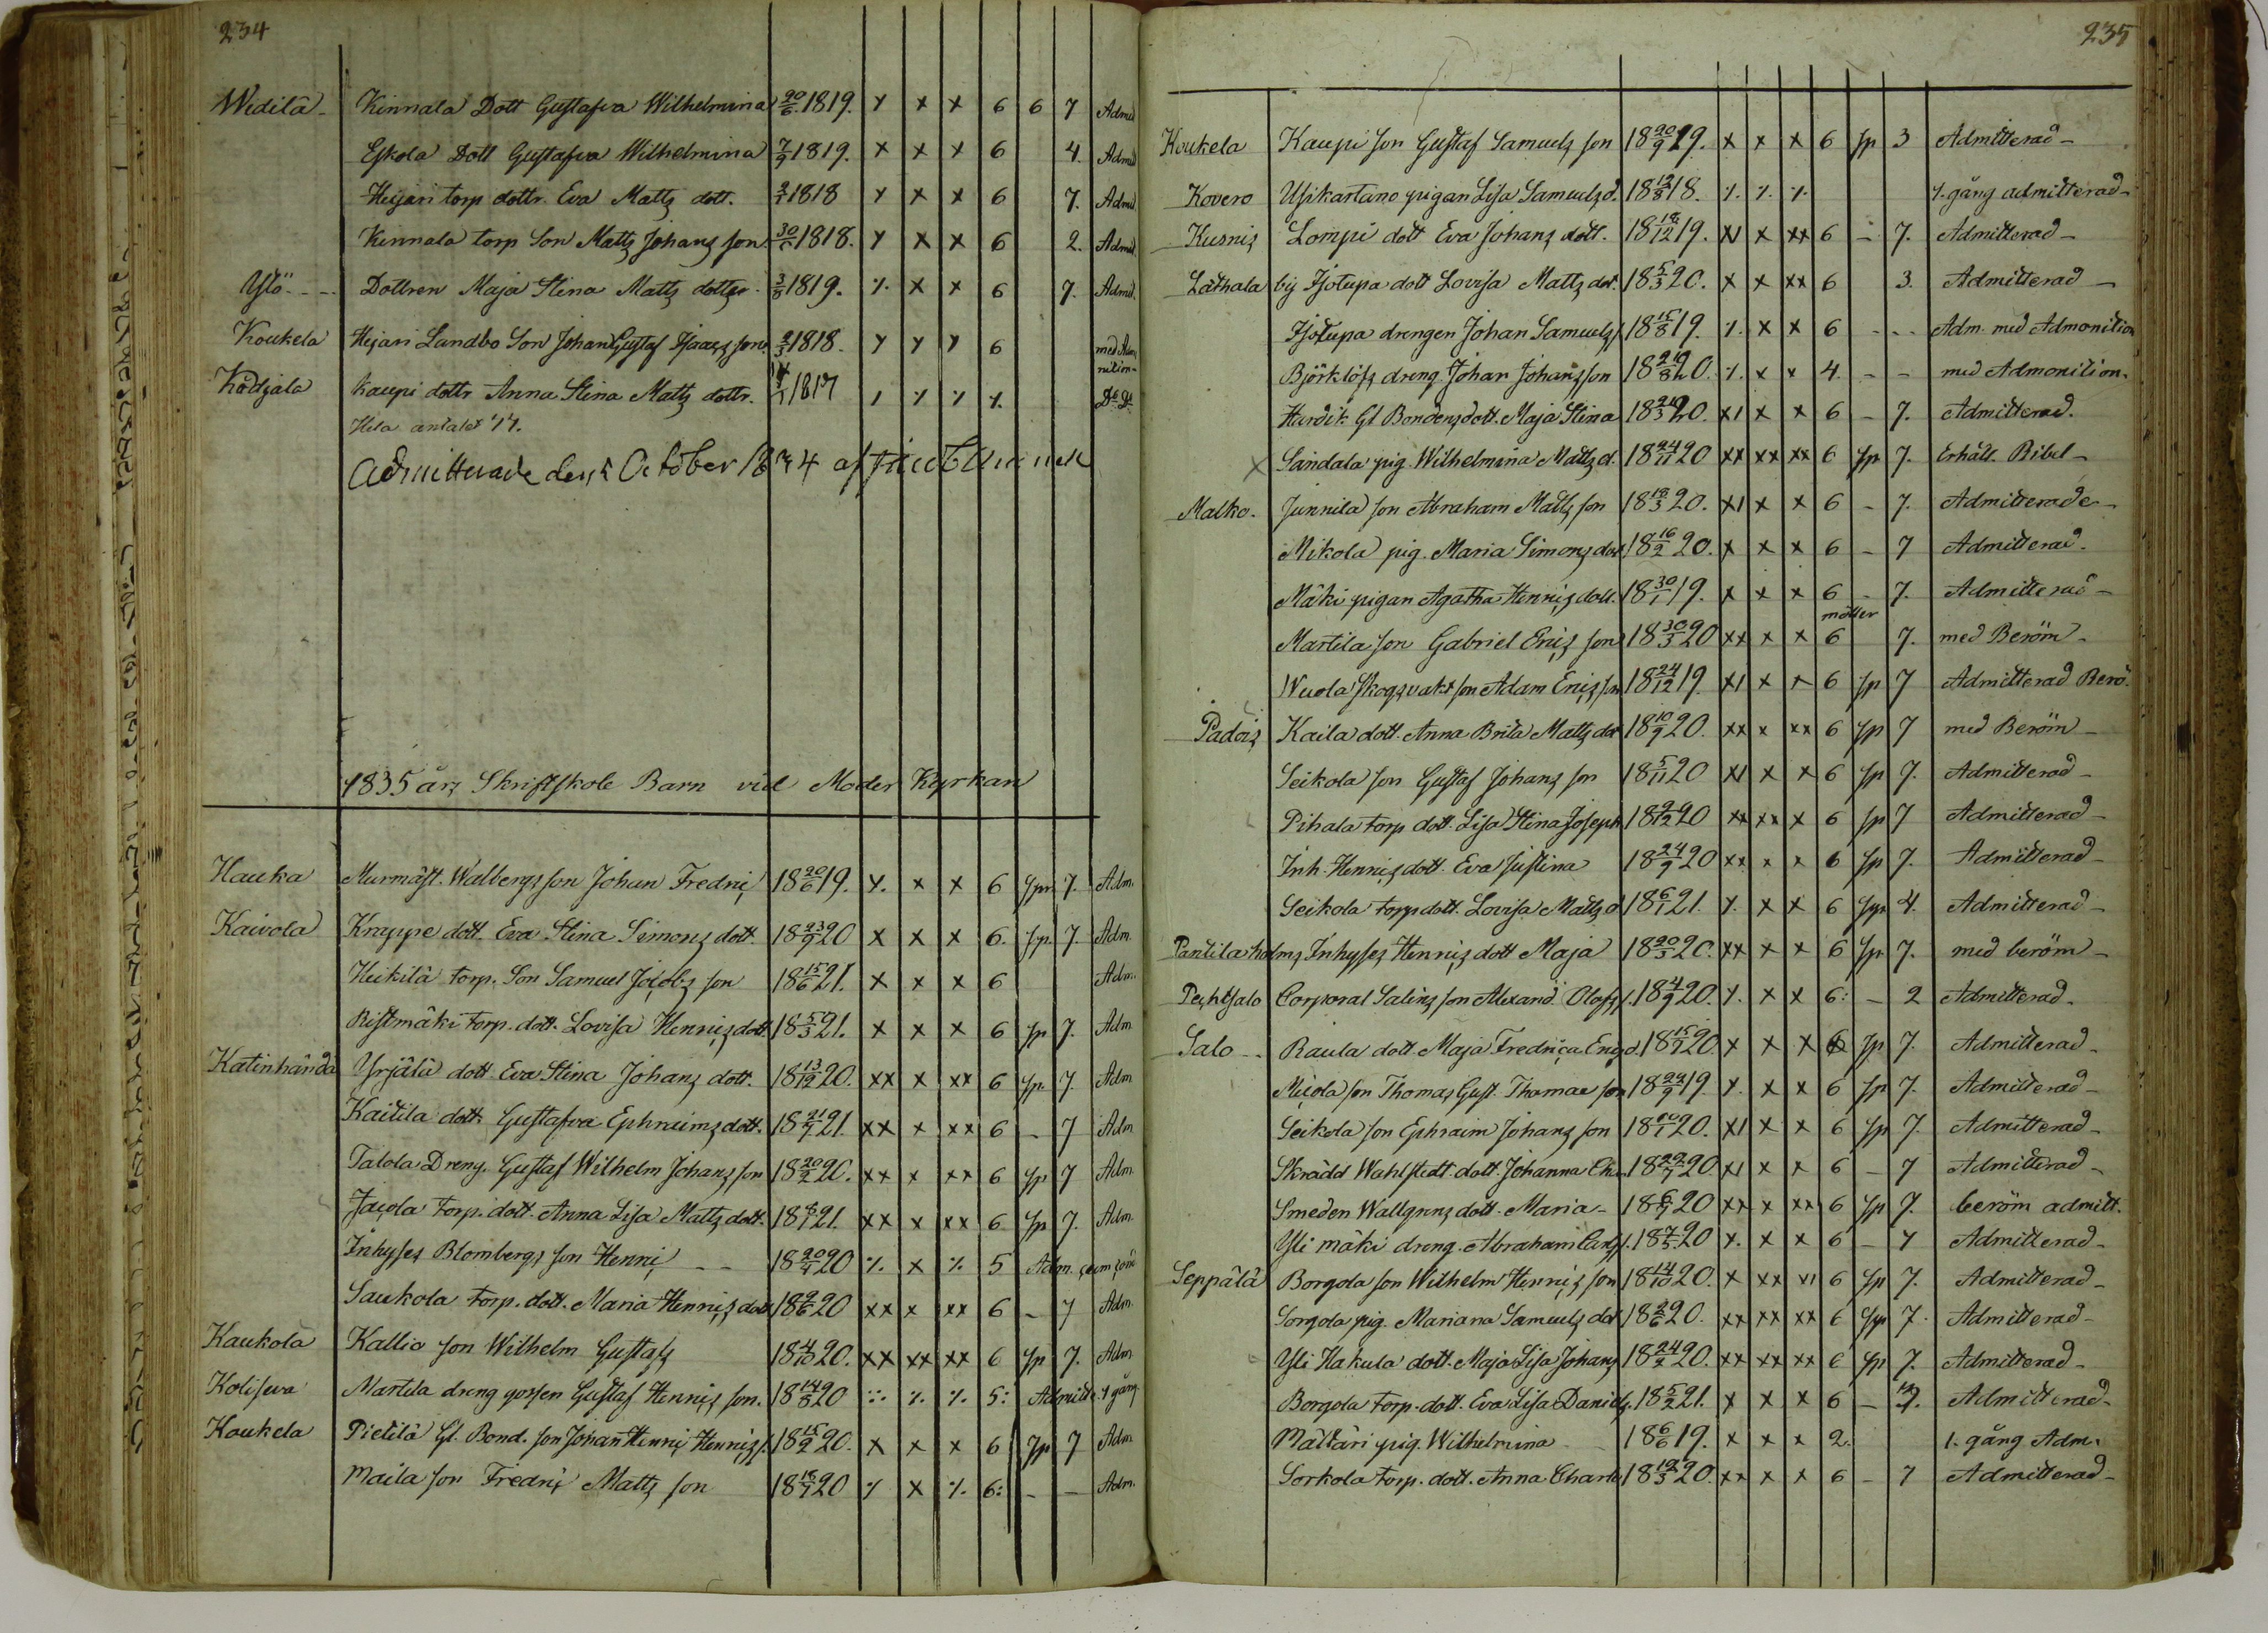 234
Widilä Kinnala Dott Gustafva Wilhelmina 20/6 1819. x x x 6 6 7 Admit
Eskola Dott Gustafva Wilhelmina 7/9 1819. x x x 6 4. Admit
Heijari torp dottr. Eva Matts dott. 1818 x x x 6 7. Admit
Kinnala torp Son Matts Johans son 1818. x x x 6 2. Admit
Ylö Dottren Maja Stina Matts dotter 1819. x x x 6 7. Admit.
Koukela Heijari Landbo Son Johan Gustaf Isaacs son 1818. 6 med Admonition
Ködjälä Kaupi dottr Anna Stina Matts dottr. 1817 Do Do
Hela antalet
Admitterade den 5 October 1834 af
1835 års Skriftskole Barn vid Moder Kyrkan
Hauka Murmäst. Walbergs son Johan Fredric 18 20/6 19. x. x x 6 7. Adm.
Kaivola Knappe dott. Eva Stina Simons dott. 18 23/9 20 x x x 6. sp. 7. Adm.
Heikilä torp. Son Samuel Jacobs son 18 15/6 21. x x x 6 Adm.
Ristmäki torp. dott. Lovisa Henrics dott. 18 5/3 21. x x x 6 sp 7. Adm
Katinhändä Yrjälä dott Eva Stina Johans dott. 18 13/12 20. xx x xx 6 sp. 7. Adm
Kaitila dott. Gustafva Ephraims dott. 18 21/7 21. xx x xx 6 - 7 Adm.
Talola Dreng. Gustaf Wilhelm Johans son 18 20/2 20. xx x xx 6 sp 7 Adm.
Jacola torp. dott. Anna Lisa Matts dott. 18 21. xx x xx 6 sp 7. Adm.
Inhyses Blombergs son Henric 18 20 20 x 5 Adm.
Saukola torp. dott. Maria Henrics dott 18 20 xx x xx 6 - 7 Adm.
Kaukola Kallio son Wilhelm Gustafs 18 4/10 20. xx xx xx 6 sp 7. Adm
Kolifeva Martila dreng gossen Gustaf Henrics son. 18 14/8 20 5: Admitt. 1 gång
Koukela Pietilä Gl. Bond. son Johan Henric Henrics s. 18 15/2 20. x x x 6 sp 7 Adm
Maila son Fredric Matts son 18 20 x 6: - - Adm.
235
Koukela Kaupi son Gustaf Samuels son 18 20/9 19. x x x 6 sp 3 Admitterad
Kovero Usikartano pigan Lisa Samuels d. 18 12/8 18. 1. gång admitterad
Kusnis Lompi dott Eva Johans dott. 18 18/12 19. x x xx 6 - 7. Admitterad
Läthala by Isotupa dott Lovisa Matts dot. 18 5/3 20. x x xx 6 3. Admitterad
Isotupa drengen Johan Samuels s 18 15/8 19. x x 6 Adm. med Admonition
Björklöfs dreng Johan Johans son 18 20. x x 4. - - med Admonition.
Hurdit Gl Bondens dott. Maja Stina 18 20. x x x 6 - 7. Admitterad.
Sandala pig. Wilhelmina Matts d. 18 24/11 20 xx xx xx 6 sp 7. Erhåll. Bibel
Malko. Junnila son Abraham Matts son 18 18/3 20. x x x 6 - 7. Admitterade
Mikola pig. Maria Simons dot 18 16/2 20. x x x 6 - 7 Admitterad.
Mäki pigan Agatha Henrics dott. 18 30/1 19. x x x 6 - 7. Admitterad
Martila son Gabriel Erics son 18 30/3 20 xx x x 6 7. med Beröm
Wuola Skogsvakt son Adam Erics son 18 24/12 19. x x x 6 sp 7 Admitterad Berö.
Padois Kaila dott. Anna Brita Matts dot 18 10/9 20. xx x xx 6 sp 7 med Beröm
Seikola son Gustaf Johans son 18 5/11 20 x x x 6 sp 7. Admitterad
Pihala torp dott. Lisa Stina Joseph 18 20 xx xx x 6 sp 7 Admitterad
Inh. Henrics dott. Eva Justina 18 24/9 20 xx x x 6 sp 7. Admitterad
Seikola torp dott. Lovisa Matts d 18 6/1 21. x x x 6 sp 4. Admitterad
Pantila holms Inhyses Henrics dott Maja 18 20/3 20. xx x x 6 sp 7. med beröm
Pechtsalo Corporal Salins son Alexand. Olofs s. 18 4/9 20. x x x 6: - 2 Admitterad.
Salo Raula dott. Maja Fredrica Eng d. 18 15 20. x x x 6 sp 7. Admitterad
Micola son Thomas Gust. Thomae son 18 19. x x x 6 sp 7. Admitterad
Seikola son Ephraim Johans son 18 20. x x x 6 sp 7. Admitterad
Skrädd Wahlstedt. dott. Johanna 18 20 x x x 6 - 7 Admitterad
Smeden Wallgrens dott. Maria 18 6 20 xx x xx 6 sp 7. beröm admitt.
Yli mäki dreng. Abraham Carls s. 18 20 x. x x 6 - 7 Admitterad
Seppälä Borgola son Wilhelm Henrics son 18 14/10 20. x xx x 6 sp 7. Admitterad
Sorgola pig. Mariana Samuels dot 18 20. xx xx xx 6 sp 7. Admitterad
Yli Hakula dott. Maja Lisa Johans 18 24 20. xx xx xx 6 sp 7. Admitterad
Borgola torp. dott. Eva Lisa Daniels. 18 5/2 21. x x x 6 - 7. Admitterad
Mättäri pig. Wilhelmina 18 6/6 19. x x x 2. 1. gång Adm.
Sorkola torp. dott. Anna Charl 18 19/3 20. xx x x 6 - 7 Admitterad